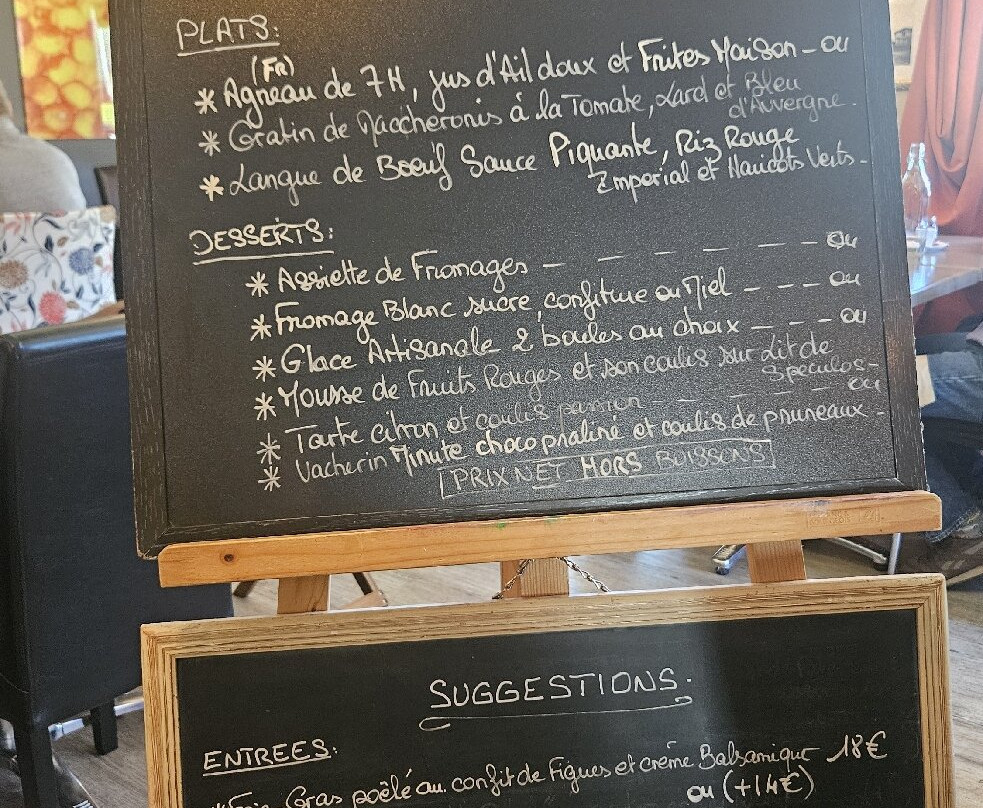 PLATS:
(FR)
* Agneau de 7H, jus d'Ail doux et Frites Maison - ou
* Gratin de Maccheronis à la Tomate, Lard et Bleu
d'Auvergne.
* Langue de Boeuf Sauce Piquante, Riz Rouge
Impérial et Haricots Verts -
DESSERTS:
* Assiette de Fromages - - - - - ou
* Fromage Blanc sucre, confiture ou Miel - - - ou
* Glace Artisanale 2 boules au choix - - - ou
* Mousse de Fruits Rouges et son coulis sur Lit de
Spéculos -
* Tarte citron et coulis passion - - - - ou
* Vacherin Minute choco praliné et coulis de pruneaux -
PRIX NET HORS BOISSONS
SUGGESTIONS.
ENTREES:
* Foie Gras poêlé au confit de Figues et crème Balsamique 18€
ou (+14€)